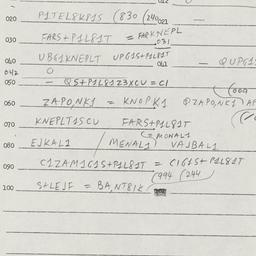 020 P1TEL8KP1S (830 /240 021
030 FARS+P1L81T = FARKNEPL
031
040 UBG1KNEPLT UPG1S+P1L81T 041 — QUPG1S
042 0
050 — QS+P1L8123XCU = C1
060 ZAPO,NK1 = KNOPK1 QZAPO,NC1 AP
070 KNEPLT1SCU FARS+P1L81T
080 EJKAL1 / MENAL1 VAJBAL1
= MONAL1
090 C1ZAM1G1S+P1L81T = C1G1S+P1L81T
(994 (244
100 S+LEJF = BA,NT81K